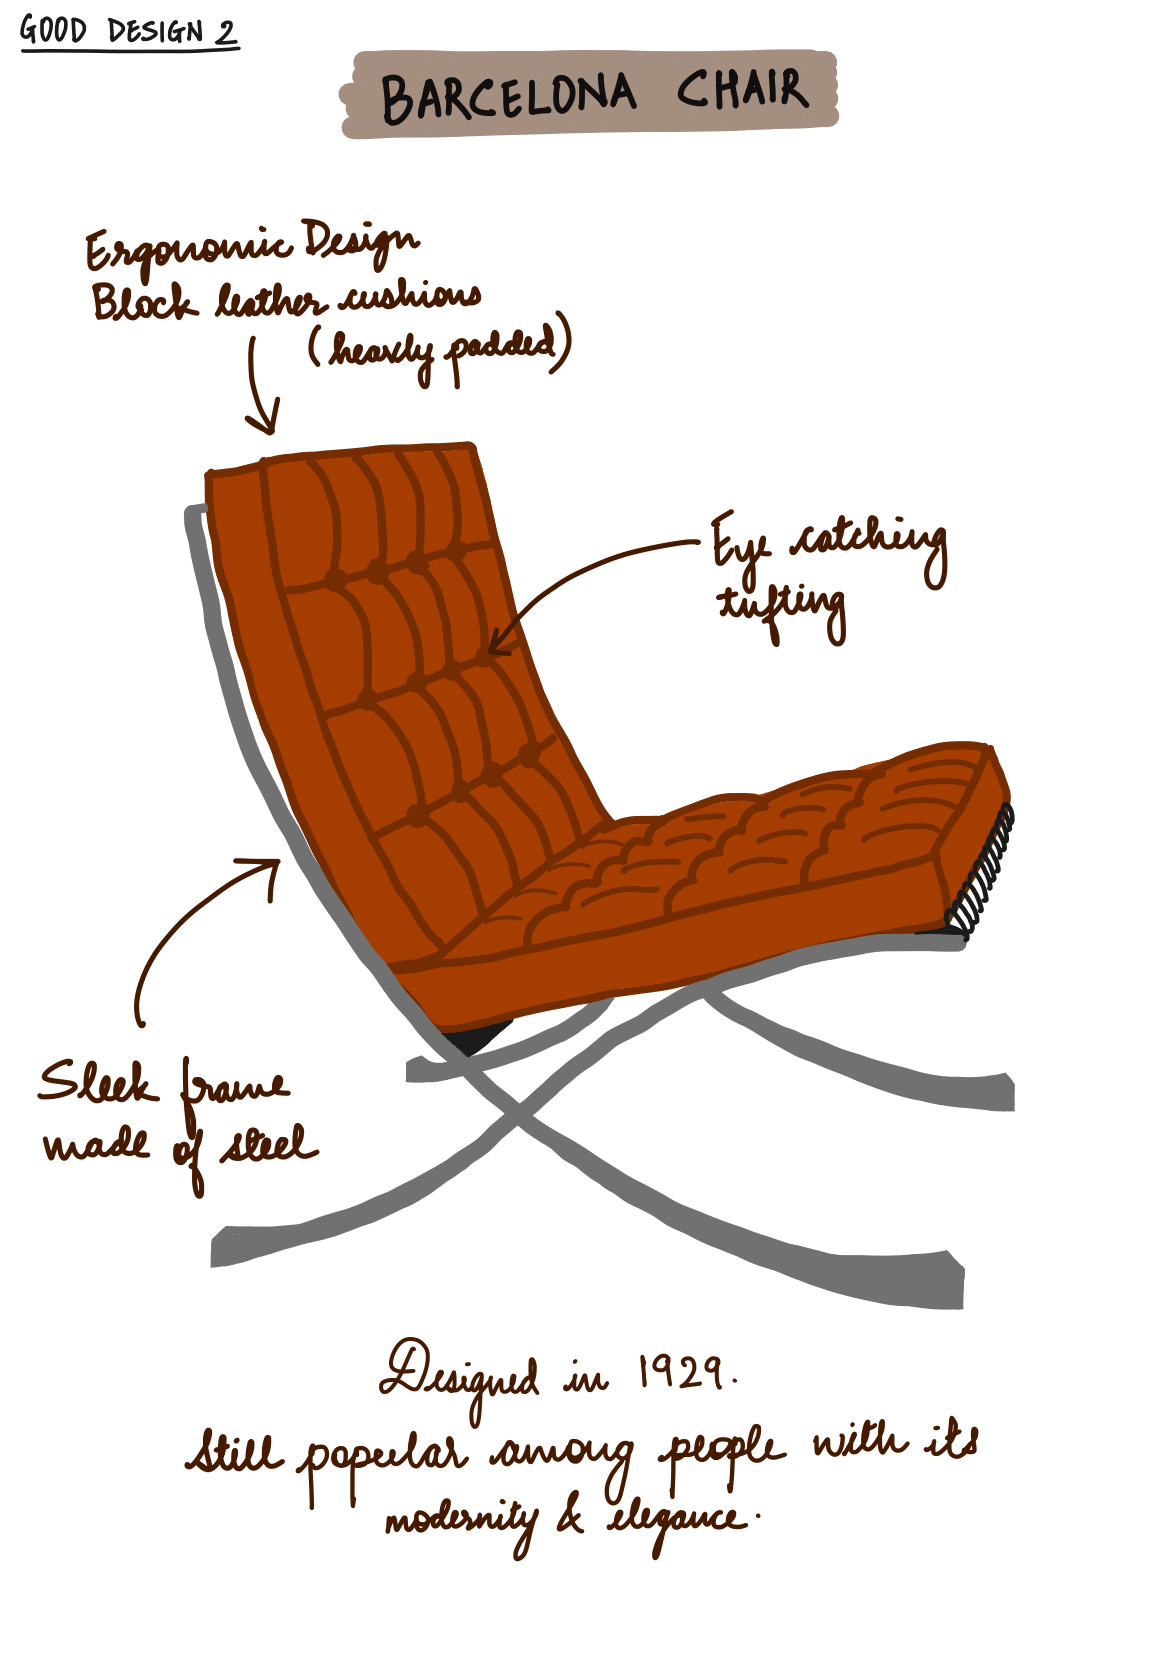 GOOD DESIGN 2
BARCELONA CHAIR
Ergonomic Design
Block leather cushions
(heavily padded)
Eye catching
tufting
Sleek frame
made of steel
Designed in 1929.
Still popular among people with its
modernity & elegance.